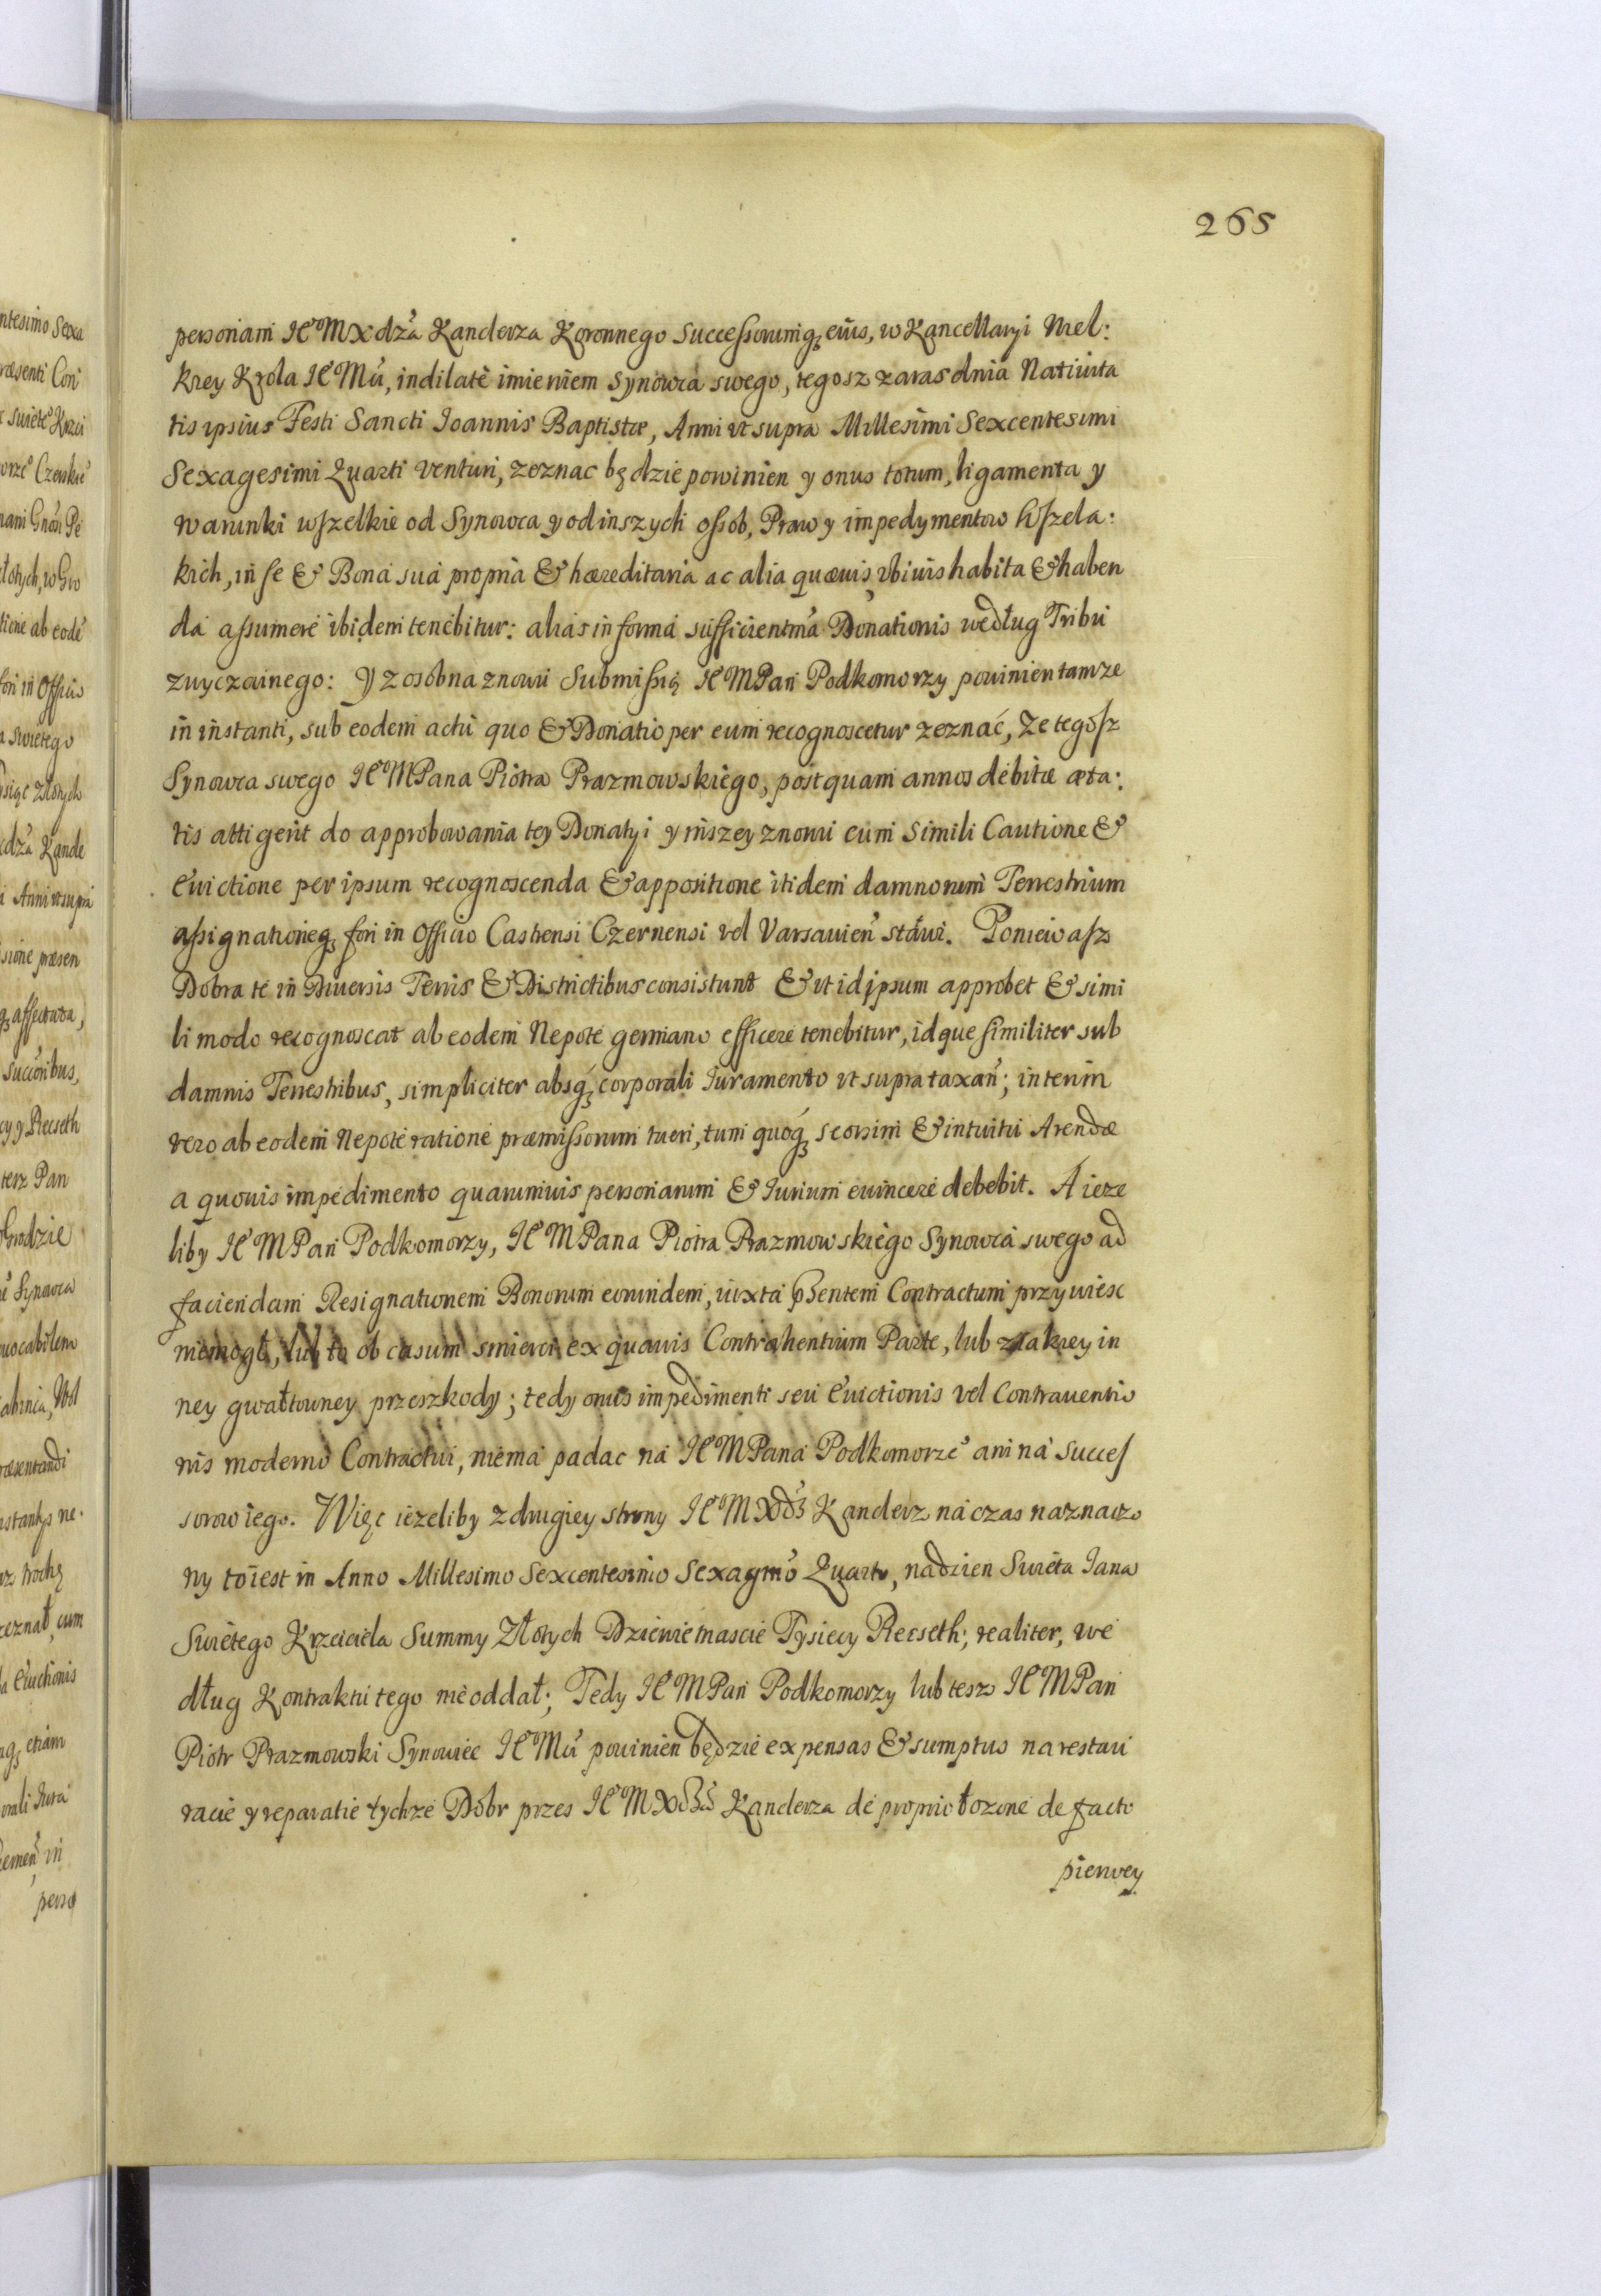 265
personam JeºMXdzá Kanclerza Koronnego Successorumq; eius, w Kancellaryi Wiel:
kiey Krola JeºMci, indilatè imieniem Synowca swego, tegosz zaras dnia Natiuita
tis ipsius Festi Sancti Ioannis Baptistæ, Anni vt supra Millesimi Sexcentesimi
Sexagesimi Quarti venturi, zeznac będzie powinien y onus totum, ligamenta y
warunki wszelkie od Synowca y od inszych ossób, Praw y impedymentow wszela:
kich, in se & Bona sua propria & hæreditaria ac alia quævis vbiuis habita & haben
da assumere ibidem tenebitur: alias in forma sufficientma Donationis według Tribu
zwyczainego: Y z osobna znowu Submissią JeºMPan Podkomorzy powinien tamze
in instanti, sub eodem actu quo & Donatio per eum recognoscetur zeznać, Ze tegosz
Synowca swego JeºMPana Piotra Prazmowskiego, postquam annos debitæ æta:
tis attigerit do approbowania tey Donatyi y inszey znowu cum simili Cautione &
Euictione per ipsum recognoscenda & appositione itidem damnorum Terrestrium
assignationeq; fori in Officio Castrensi Czernensi vel Varsauien stawi. Poniewasz
Dobra te in Diuersis Terris & Districtibus consistunt & vt id ipsum approbet & simi
li modo recognoscat ab eodem Nepote germano efficere tenebitur, idque similiter sub
damnis Terrestribus, simpliciter absq; corporali Iuramento vt supra taxan; interim
vero ab eodem Nepote ratione præmissorum tueri, tum quoq; seorsim & intuitu Arendæ
a quouis impedimento quarumuis personarum & Iurium euincere debebit. A ieze
liby JeºMPan Podkomorzy, JeºMPana Piotra Prazmowskiego Synowca swego ad
faciendam Resignationem Bonorum eorumdem, iuxta pñsentem Contractum przywiesc
niemogł, lub to ob casum smierci ex quauis Contrahentium Parte, lub z iakiey in
ney gwałtowney przeszkody; tedy onus impedimenti seu Euictionis vel Contrauentio
nis moderno Contractui, niema padac na JeºMPana Podkomorzeº ani na Succes
sorow iego. Więc iezeliby z drugiey strony JeºMXdz Kanclerz na czas naznaczo
ny to iest in Anno Millesimo Sexcentesimo Sexagmo Quarto, na dzien Swieta Jana
Swietego Krzciciela Summy Złotych Dziewietnascie Tysiecy Recseth; realiter, we
dług Kontraktu tego nie oddał; Tedy JeºMPan Podkomorzy lub tesz JeºMPan
Piotr Prazmowski Synowiec JeºMci powinien będzie expensas & sumptus na restau
racie y reparatie tychze Dobr przes JeºMXdza Kanclerza de proprio łozone de facto
pierwey